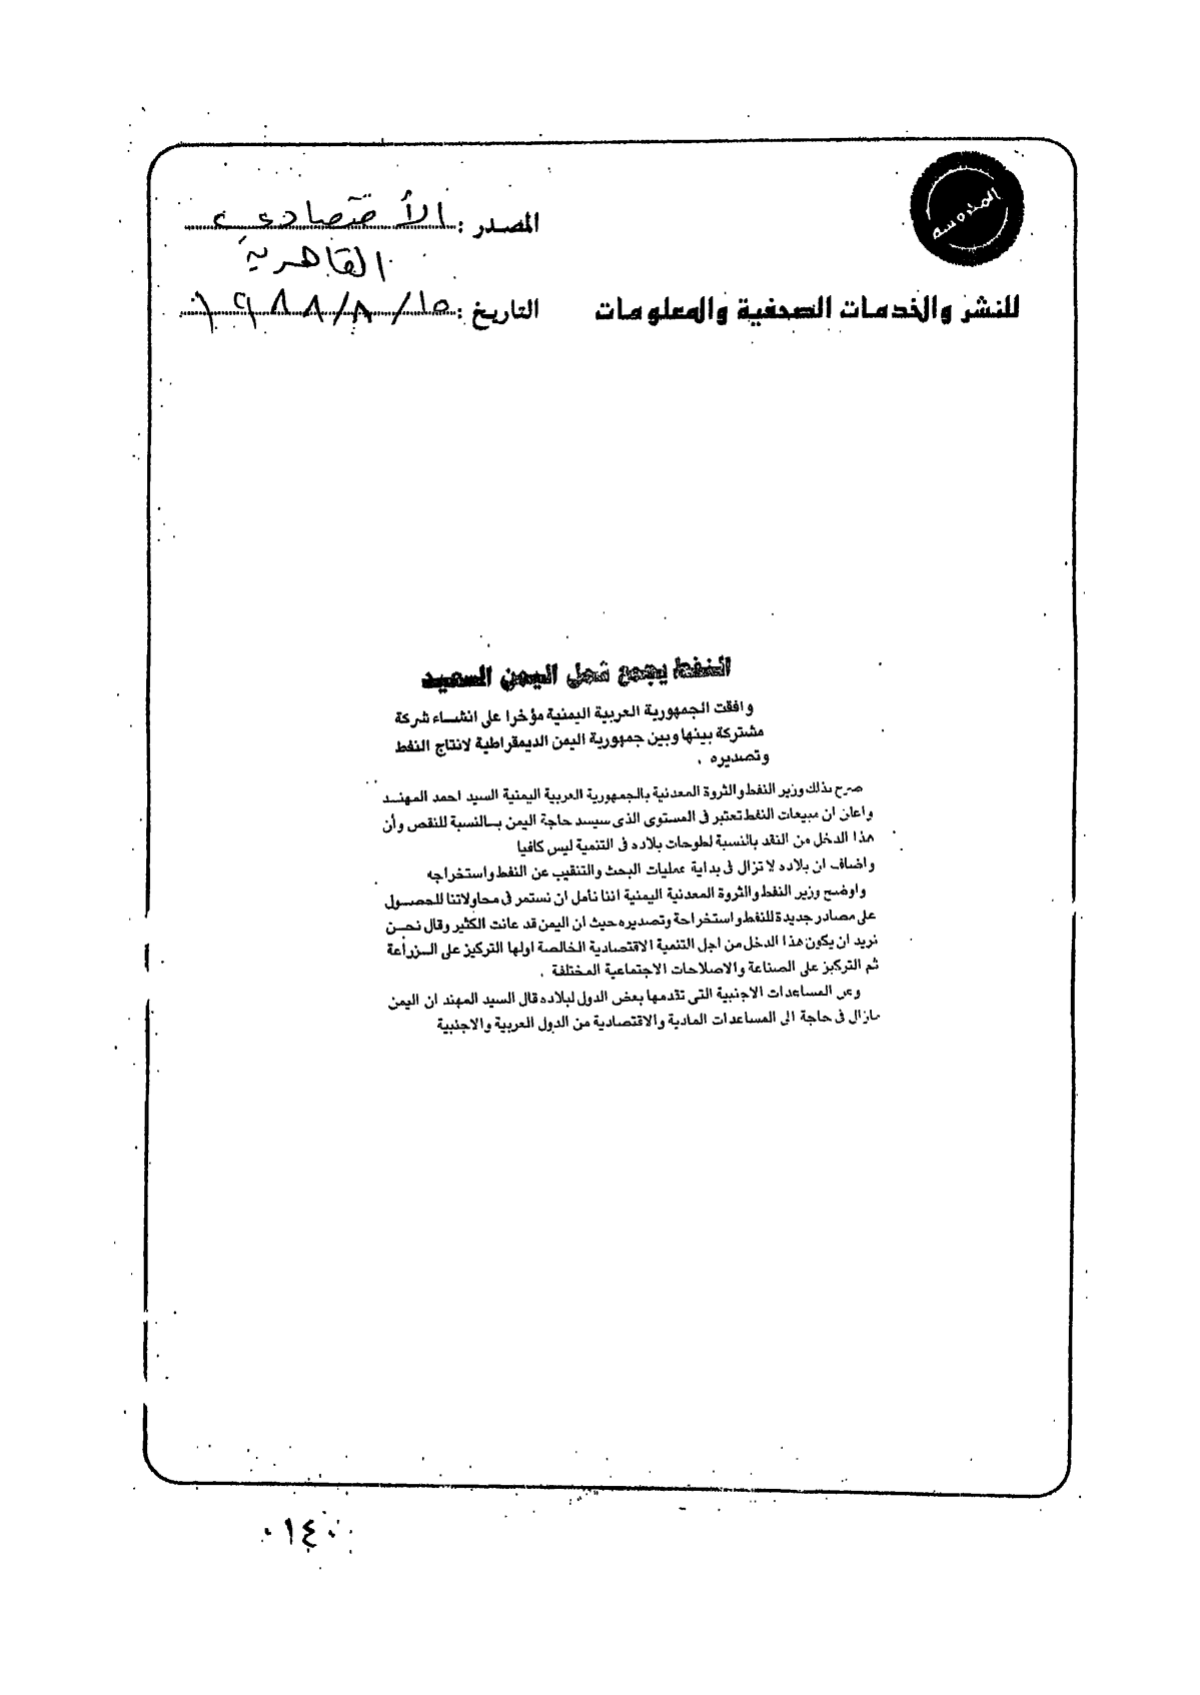 المصدر : الأقتصادي
القاهرية
للنشر والخدمات الصحفية والمعلومات
التاريخ : ١٥/٨/١٩٨٨
النفط يجمع شمل اليمن السعيد
وافقت الجمهورية العربية اليمنية مؤخرا على انشاء شركة
مشتركة بينها وبين جمهورية اليمن الديمقراطية لانتاج النفط
وتصديره .
صرح بذلك وزير النفط والثروة المعدنية بالجمهورية العربية اليمنية السيد احمد المهند
واعلن ان مبيعات النفط تعتبر فى المستوى الذى سيسد حاجة اليمن بالنسبة للنقص وأن
هذا الدخل من النقد بالنسبة لطموحات بلاده فى التنمية ليس كافيا
واضاف ان بلاده لا تزال فى بداية عمليات البحث والتنقيب عن النفط واستخراجه
واوضح وزير النفط والثروة المعدنية اليمنية اننا نأمل ان نستمر فى محاولاتنا للحصول
على مصادر جديدة للنفط واستخراجة وتصديره حيث ان اليمن قد عانت الكثير وقال نحن
نريد ان يكون هذا الدخل من اجل التنمية الاقتصادية الخالصة اولها التركيز على الزراعة
ثم التركيز على الصناعة والاصلاحات الاجتماعية المختلفة .
وعن المساعدات الاجنبية التى تقدمها بعض الدول لبلاده قال السيد المهند ان اليمن
مازال فى حاجة الى المساعدات المادية والاقتصادية من الدول العربية والاجنبية
٠١٤٠